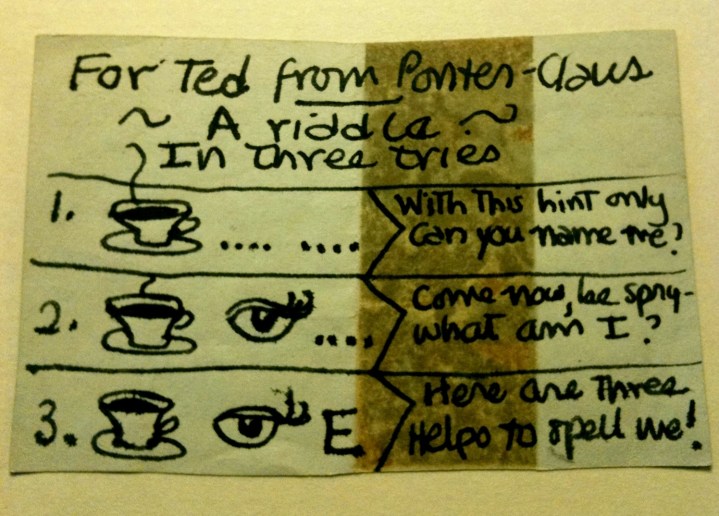 For Ted from Ponten-Claus
~ A riddle ~
In three tries
1. .... .... With this hint only
Can you name me?
2. .... Come now, be spry-
what am I?
3. E Here are three
Helps to spell me!